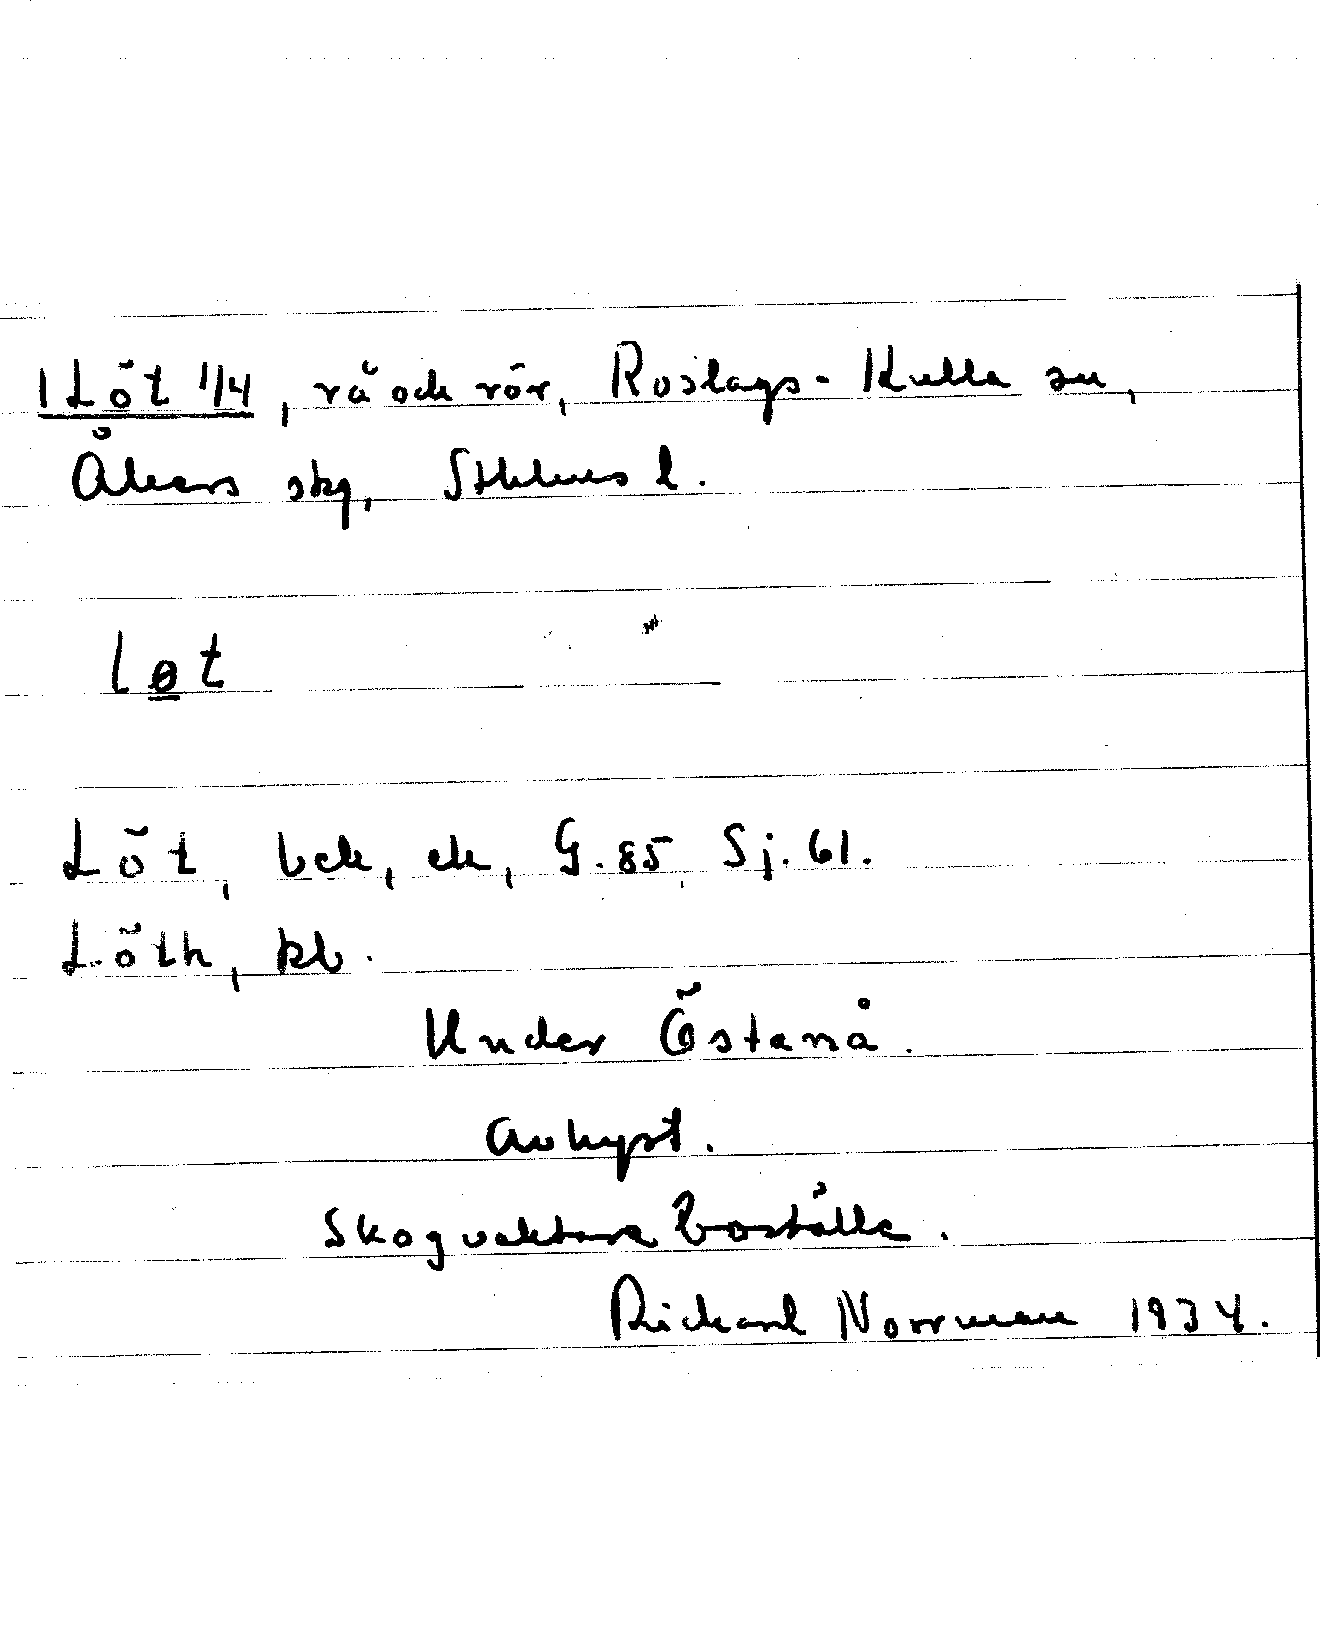 1 Löt 1/4, rå och rör, Roslags-Kulla sn,
Åkers skg, Sthlms l.
løt
Löt, bck, ek, G. 85, Sj. 61.
Löth, kb.
Under Östanå.
Avhyst.
Skogvaktareboställe.
Rickard Norrman 1934.